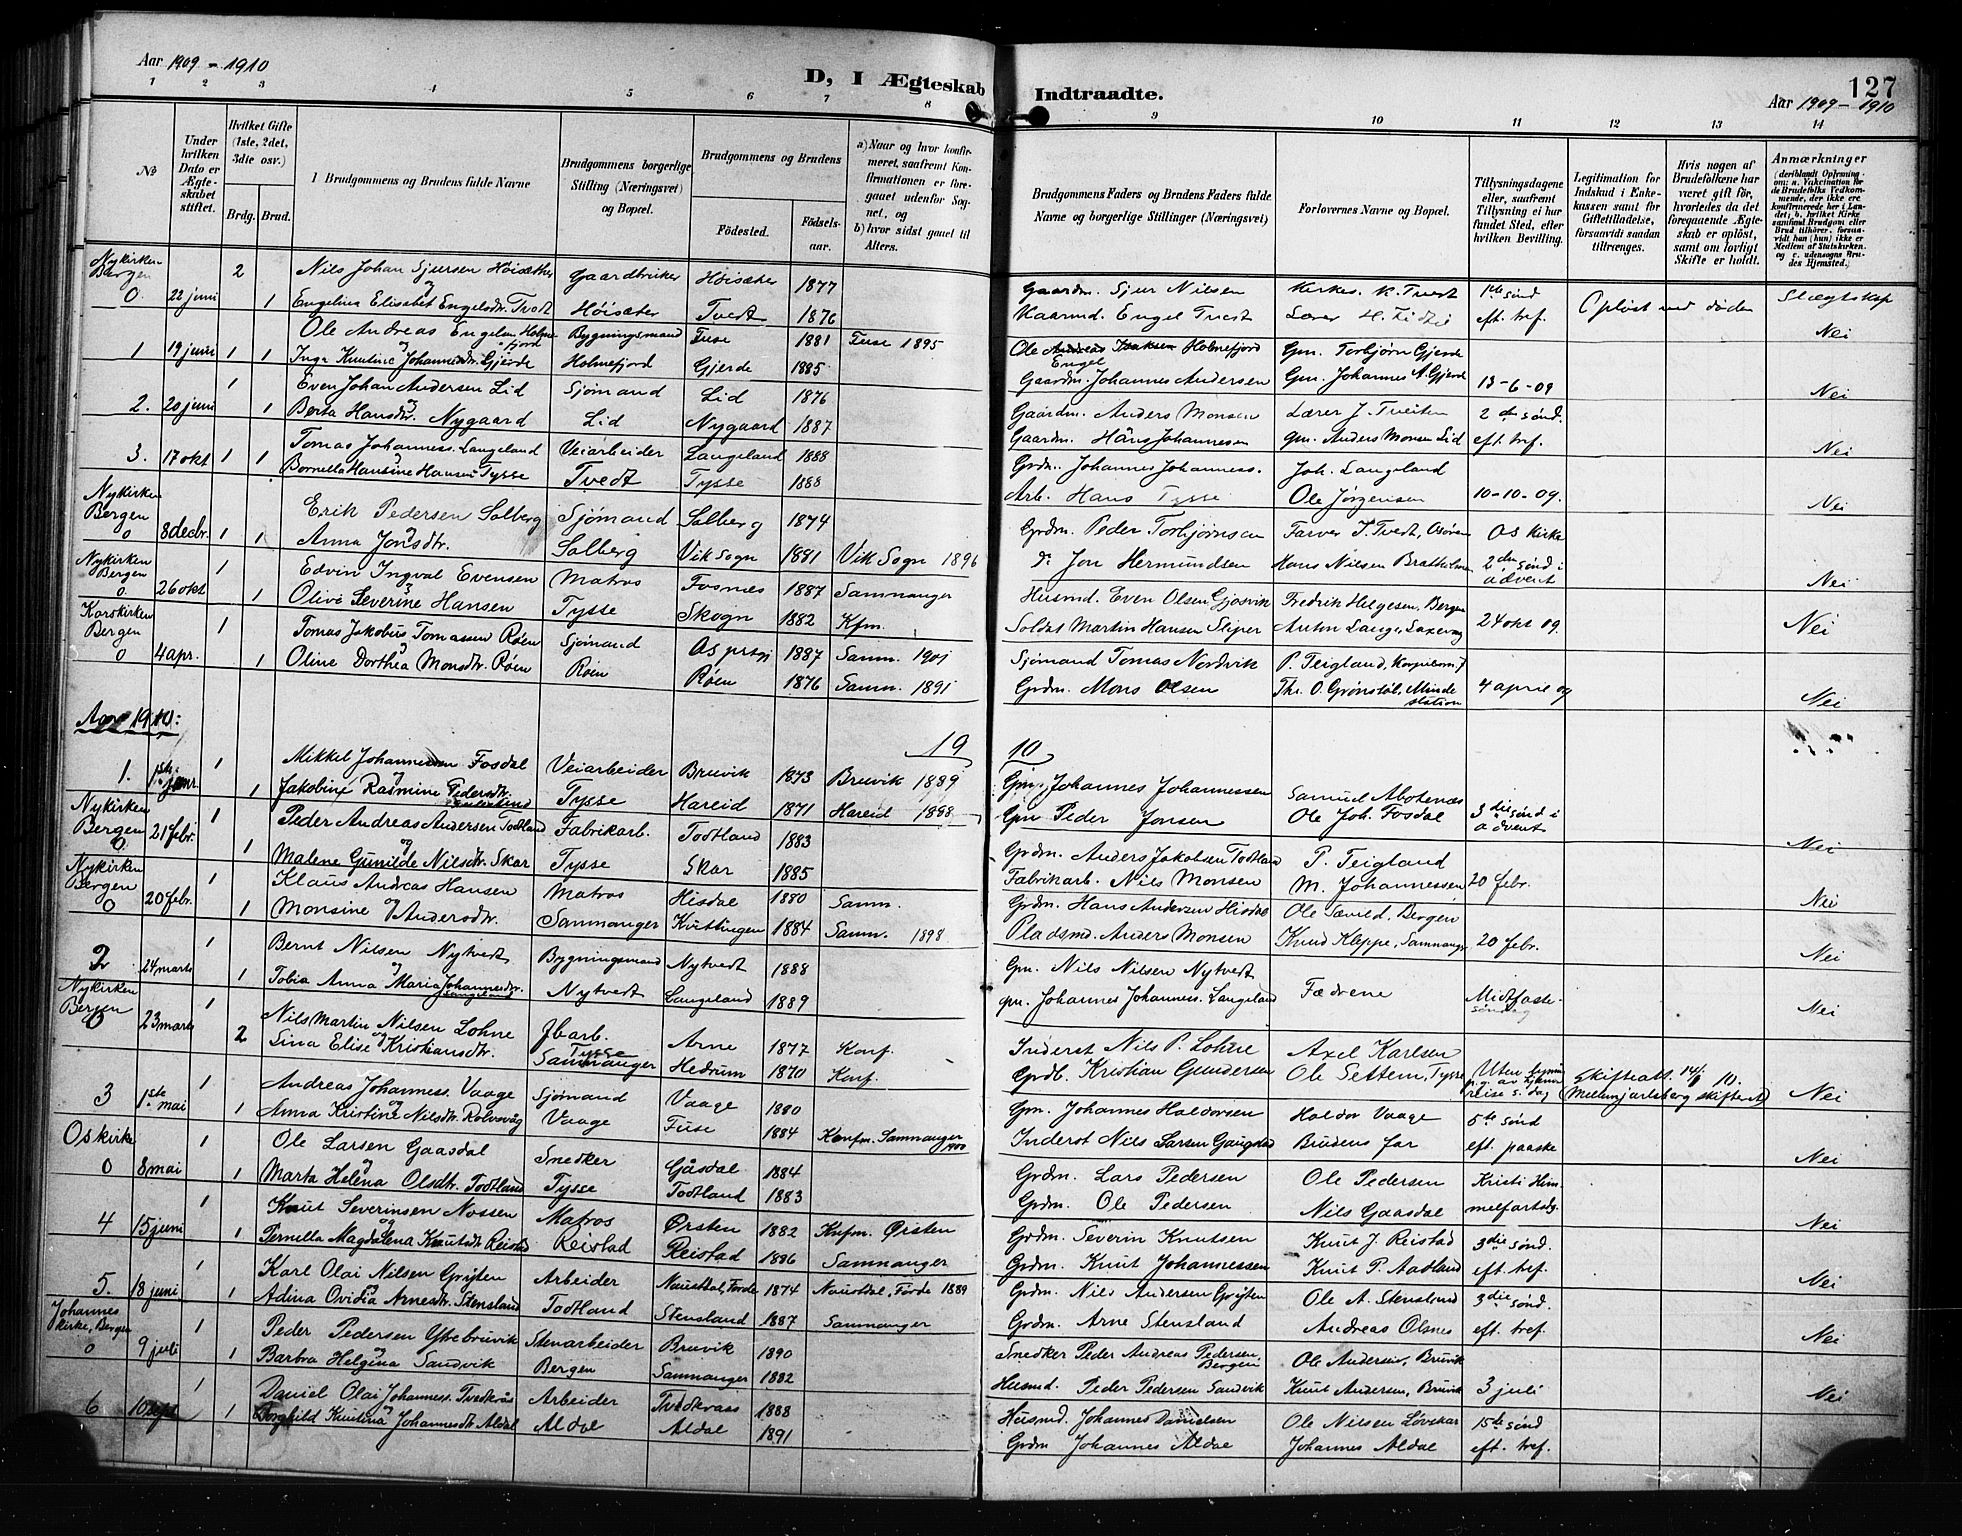 Aar 1909 - 1910
D, I Ægteskab Indtraadte.
127
Aar 1909 - 1910
1 2 3 4 5 6 7 8 9 10 11 12 13 14
No
Under hvilken Dato er Ægteskabet stiftet.
Hvilket Gifte (1ste, 2det, 3die osv.)
Brdg. Brud.
1 Brudgommens og Brudens fulde Navne
Brudgommens borgerlige Stilling (Næringsvei) og Bopæl.
Brudgommens og Brudens
Fødested. Fødselsaar.
a) Naar og hvor konfirmeret, saafremt Konfirmationen er foregaaet udenfor Sognet, og
b) hvor sidst gaaet til Alters.
Brudgommens Faders og Brudens Faders fulde Navne og borgerlige Stillinger (Næringsvei)
Forlovernes Navne og Bopæl.
Tillysningsdagene eller, saafremt Tillysning ei har fundet Sted, efter hvilken Bevilling.
Legitimation for Indskud i Enkekassen samt for Giftetilladelse, forsaavidt saadan tiltrænges.
Hvis nogen af Brudefolkene har været gift før, hvorledes da det foregaaende Ægteskab er opløst, samt om lovligt Skifte er holdt.
Anmærkninger
(deriblandt Oplysning om: a. Vakcination for de Brudefolks Vedkommende, der ikke ere konfirmerede her i Landet; b. hvilket Kirkesamfund Brudgom eller Brud tilhører, forsaavidt han (hun) ikke er Medlem af Statskirken. og c. udensogns Brudes Hjemsted.)
Nykirken Bergen 2 Nils Johan Sjursen Høisæther Gaardbruker Høisæter 1877 Gaardm. Sjur Nilsen Kirkes. K. Tvedt 1ste sønd Opløst ved døden Slægtskap
0. 22 juni 1 og Engelina Elisabet Engelsdtr. Tvedt Høisæter Tvedt 1876 Gaardm. Engel Tvedt Lærer eft. tref. Nei
Ole Andreas Engelsen Holmefjord Bygningsmand Fuse 1881 Fuse 1895 Ole Engel Holmefjord Gm. Torbjørn Gjerde
1 19 juni 1 1 Inga Knutine og Johannesdtr. Gjerde Holmefjord Gjerde 1885 Gaardm. Johannes Andersen Gm. Johannes A. Gjerde 13-6-09 Nei
1 Even Johan Andersen Lid Sjømand Lid 1876 Gaardm. Anders Monsen Lærer J. Tveiten 2den sønd
2. 20 juni 1 Berta Hansdtr. og Nygaard Lid Nygaard 1887 Gaardm. Hans Johannesen gm. Anders Monsen Lid eft. tref. Nei
Tomas Johanness. Langeland Veiarbeider Langeland 1888 Grdm. Johannes Johanness. Joh. Langeland
3. 17 okt 1 1 Bornella Hansine og Hansen Tysse Tvedt Tysse 1888 Arb. Hans Tysse Ole Jørgensen 10-10-09. Nei
Nykirken Bergen Erik Pedersen Solberg Sjømand Solberg 1874 Grdm. Peder Torbjørnsen Farver T. Tvedt, Osøren Os Kirke
0 8 decbr. 1 1 Anna Jonsdtr. og Solberg Vik Sogn 1881 Vik Sogn 1896 Do Jon Hermundsen Hans Nilsen Bratholmen 2den sønd i advent Nei
Nykirken Bergen 1 Edvin Ingval Evensen Matros Fosnæs 1887 Samnanger Husmd. Even Olsen Gjøsvik Fredrik Helgesen, Bergen
0 26 okt 1 Olive Severine og Hansen Tysse Skogn 1882 Kfm. Soldat Martin Hansen Sliper Anton Lange, Laxevaag 24 okt 09. Nei
Korskirken Bergen 1 Tomas Jakobus Tomassen Røen Sjømand Os prstgj 1887 Samn. 1901 Sjømand Tomas Nordvik P. Teigland,
0 4 apr. 1 Oline Dorthea og Monsdtr. Røen Røen Røen 1876 Samn. 1891 Grdm. Mons Olsen Thr. O. Grønstøl, Minde station 4 april 09 Nei
Aar 1910:
1910
1. 1ste janr. 1 Mikkel Johannessen Fosdal Veiarbeider Bruvik 1873 Bruvik 1889 Gm. Johannes Johannessen Samuel Abotenæs 3die sønd i advent
1 Jakobine Rasmine og Pedersdtr. Tysse Hareid 1871 Hareid 1888 Gm Peder Jonsen Ole Joh. Fosdal Nei
Nykirken Bergen 0 21 febr. 1 Peder Andreas Andersen Todtland Fabrikarb. Todtland 1883 Grdm. Anders Jakobsen Todtland P. Teigland
1 og Malene Gunilde Nilsdtr. Skar Tysse Skar 1885 Fabrikarb. Nils Monsen M. Johannessen 20 febr. Nei
Nykirken Bergen 1 Klaus Andreas Hansen Matros Hisdal 1880 Samn. Grdm. Hans Andersen Hisdal Ole Sæveld, Bergen
0 20 febr. 1 Monsine og Andersdtr. Samnanger Kvittingen 1884 Samn. 1898 Pladsmd. Anders Monsen Knud Kleppe, Samnanger 20 febr. Nei
2 24 marts 1 Bernt Nilsen Nytvedt Bygningsmand Nytvedt 1888 Gm. Nils Nilsen Nytvedt Fædrene Midtfaste søndag
1 Tobia Anna og Maria Johannesdtr. Langeland Nytvedt Langeland 1889 gm. Johannes Johanness. Langeland Nei
Nykirken Bergen 0 23 marts 1 Nils Martin Nilsen Lohne Fbarb. Arne 1877 Konf. Inderst Nils P. Lohne Axel Karlsen
2 Lina Elise og Kristiansdtr. Tysse Samnanger Hedrum 1870 Konf. Grdb. Kristian Gundersen Ole Settem, Tysse Uten lysning reise s. dag Skifteatt. 14/1 10. Mellem Jarlsberg skifterett Nei
3 1ste mai 1 Andreas Johanness. Vaage Sjømand Vaage 1880 Gm. Johannes Haldorsen Haldor Vaage 5te sønd
1 Anna Kristine og Nilsdtr. Rolvsvåg Vaage Fuse 1884 Konfm. Samnanger 1900 Inderst Nils Larsen Gaugstad Brudens far eft. paaske Nei
Os kirke 1 Ole Larsen Gaasdal Snedker Gåsdal 1884 Grdm. Lars Pedersen Ole Pedersen Kristi Him
0 8 mai 1 Marta Helena og Olsdtr. Todtland Tysse Todtland 1883 Grdm. Ole Pedersen Nils Gaasdal melfartsdg. Nei
1 Knut Severinsen Nossen Matros Ørsten 1882 Knfm. Ørsten Grdm. Severin Knutsen Knut J. Reistad 3die sønd.
4 15 juni 1 Pernilla Magdalena og Knutsdtr. Reistad Reistad Reistad 1886 Samnanger Grdm. Knut Johannessen Knut P. Aadland eft. tref. Nei
1 Karl Olai Nilsen Grijten Arbeider Naustdal, Førde 1874 Naustdal, Førde 1889 Grdm. Nils Andersen Grijten Ole A. Stensland 3die sønd.
5. 18 juni 1 Adina Ovidia og Arnesdtr. Stensland Todtland Stensland 1887 Samnanger Grdm. Arne Stensland Andreas Olsnes eft. tref. Nei
Johannes kirke, Bergen 1 Peder Pedersen Ytrebruvik Stenarbeider Bruvik 1890 Snedker Peder Andreas Pedersen Bergen Ole Andersen, Bruvik
0 9 juli 1 Barbra Helgina og Sandvik Bergen Samnanger 1882 Husmd. Peder Pedersen Sandvik Knut Andersen, Bruvik 3 juli Nei
1 Daniel Olai Johanness. Tvedteraas Arbeider Tvedteraas 1888 Husmd. Johannes Danielsen Ole Nilsen Løvekar 15te sønd
6 10 sept. 1 Borghild Knutena og Johannesdtr. Aldal Aldal Aldal 1891 Grdm Johannes Aldal Johannes Aldal eft. tref.